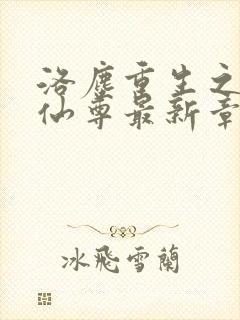 洛塵重生之
仙尊最新章
冰飛雪蘭